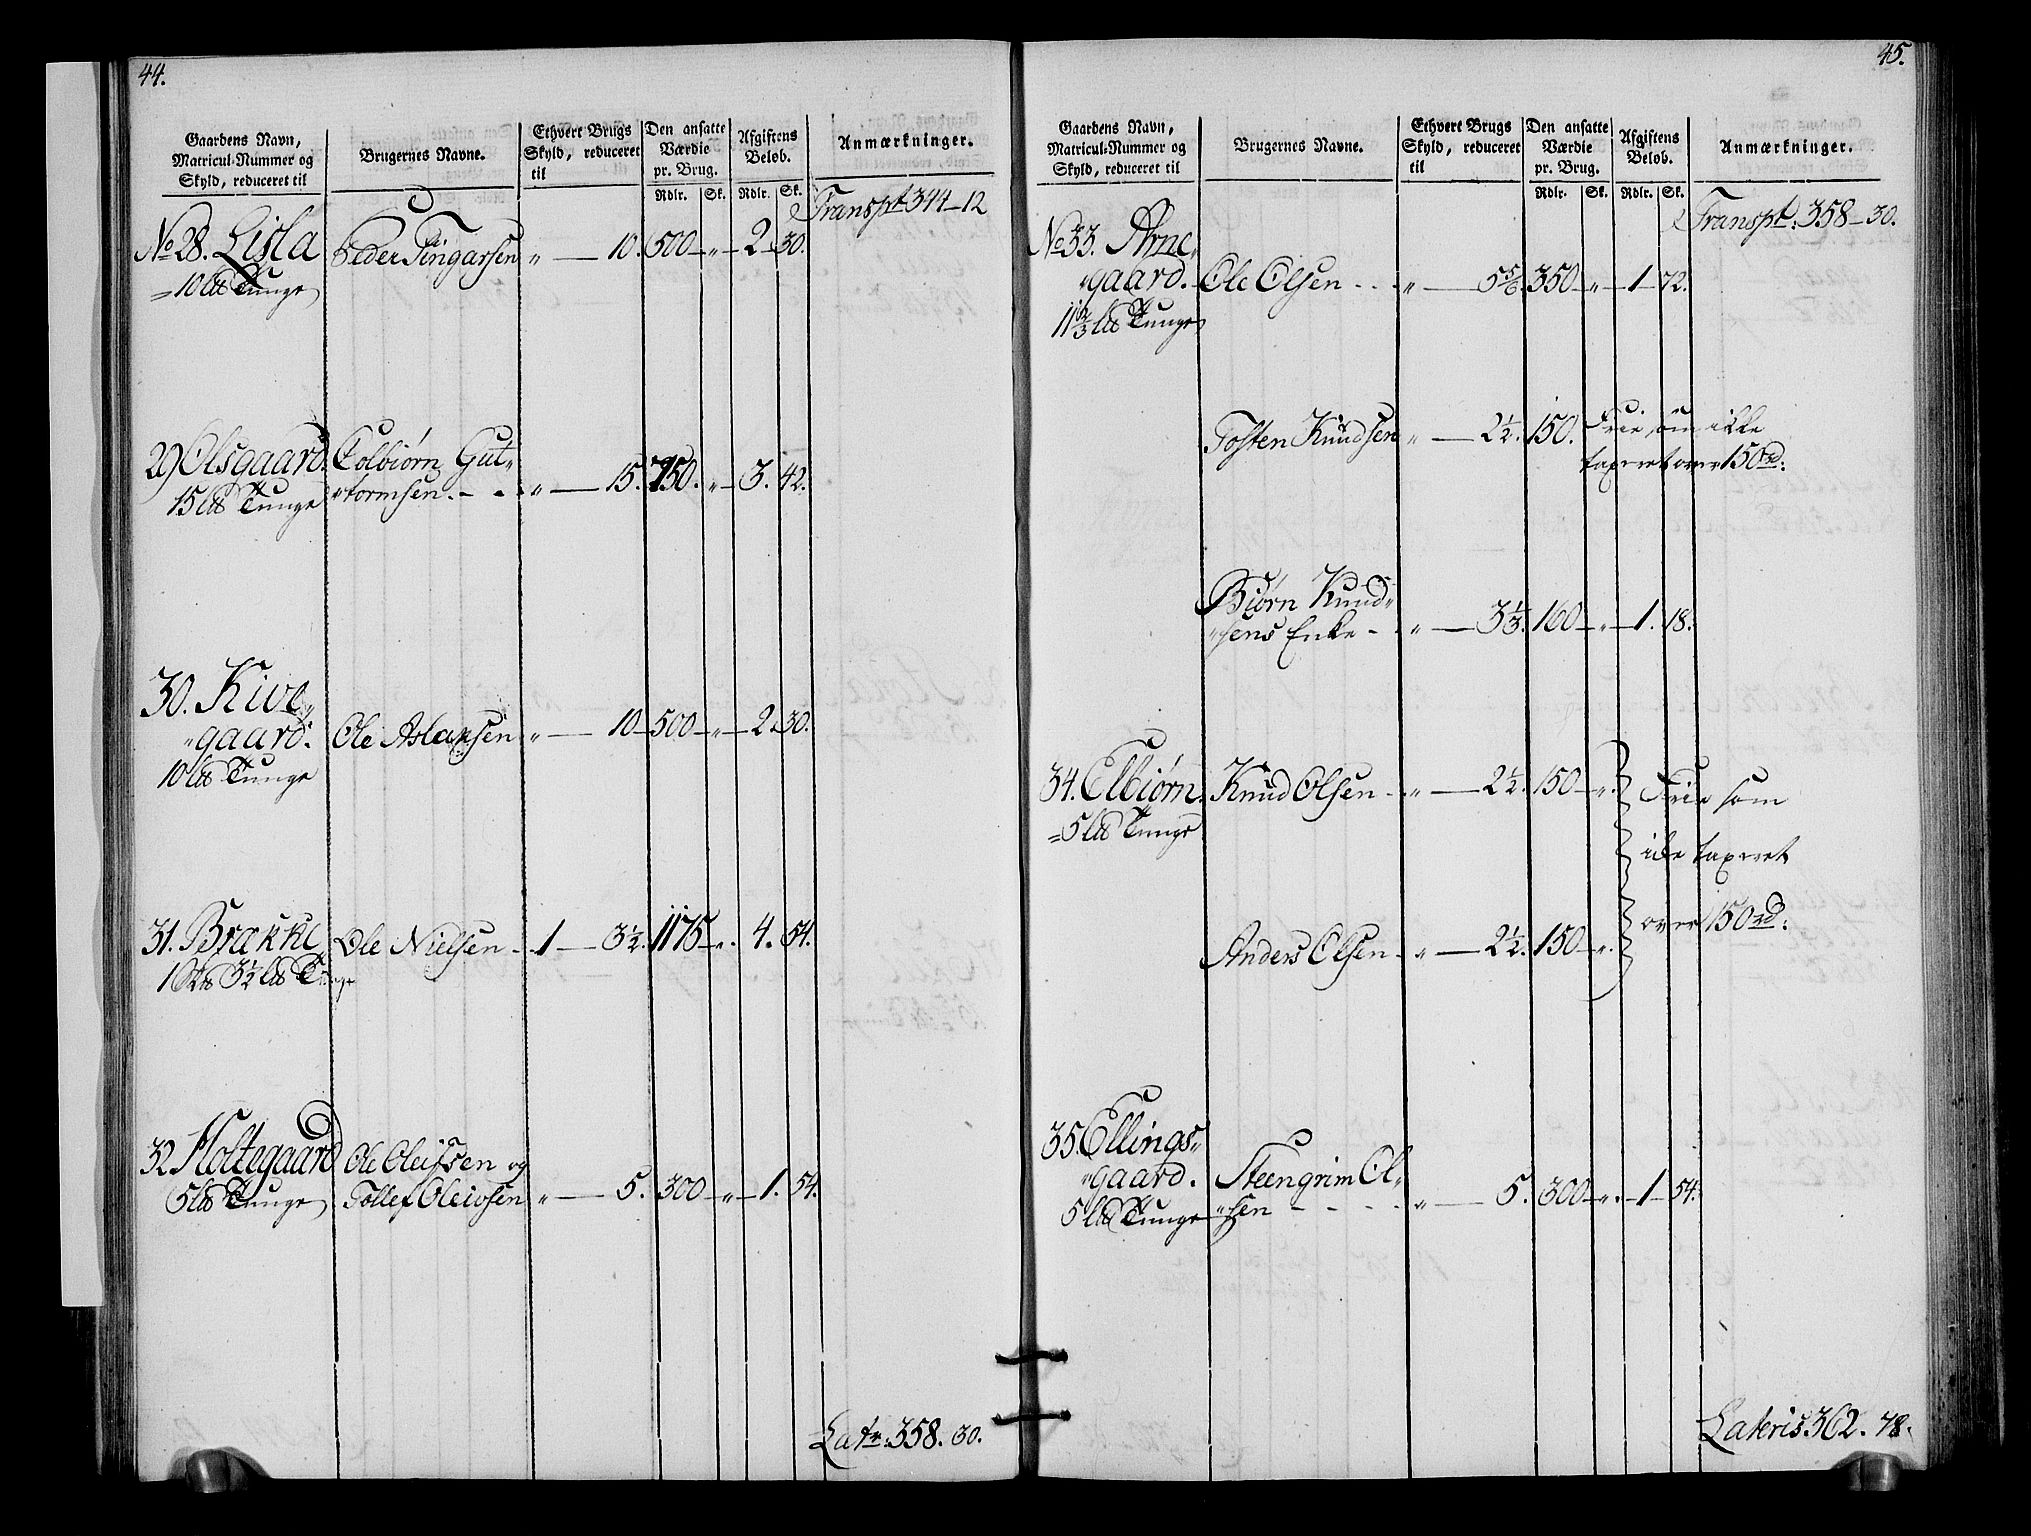 44.
Gaardens Navn, Matricul-Nummer og Skyld, reduceret til
Brugernes Navne.
Ethvert Brugs Skyld, reduceret til
Den ansatte Værdie pr. Brug.
Afgiftens Beløb.
Anmærkninger.
Rdlr. Sk. Rdlr. Sk.
Transpt 344-12
No 28. Lisla Peder Tingarsen " — 10. 500 - " - 2 - 30.
= 10 lb Tunge
29 Olsgaard. Tolbiørn Gut„
15 lb Tunge „tormsen. - - - " — 15. 750. " - 3. 42.
30. Kive„
„gaard. Ole Aslaksen " — 10 - 500 - " - 2. 30.
10 lb Tunge
31. Brække Ole Nielsen - 1 — 3½. 1175 - " . 4. 54.
1 3½ lb Tunge
32 Holtegaard Ole Oleifsen og
5 lb Tunge Tollef Oleivsen " — 5. 300 - " - 1. 54.
Latr. 358. 30.
45.
Gaardens Navn, Matricul-Nummer og Skyld, reduceret til
Brugernes Navne.
Ethvert Brugs Skyld, reduceret til
Den ansatte Værdie pr. Brug.
Afgiftens Beløb.
Anmærkninger.
Rdlr. Sk. Rdlr. Sk.
Transpt. 358-30.
No 33. Arne„
„gaard. Ole Olsen - - - " — 5⅚. 350 - " - 1 - 72.
11⅔ lb Tunge
Tosten Knudsen " — 2½. 150. Frie, som ikke
taxeret over 150rd:
Biørn Knud„
„sens Enke - - " — 3⅓. 160 - " - 1. 18.
34. Elbiørn. Knud Olsen - - " — 2½. 150 - " . Frie som
= 5 lb Tunge
ike taxeret
over 150rd:
Anders Olsen - " — 2½. 150 - " .
35. Ellings„
„gaard. Steengrim Ol„
5 lb Tunge „sen - - - - " — 5. 300 - " . - 1 - 54.
Lateris 362. 78.